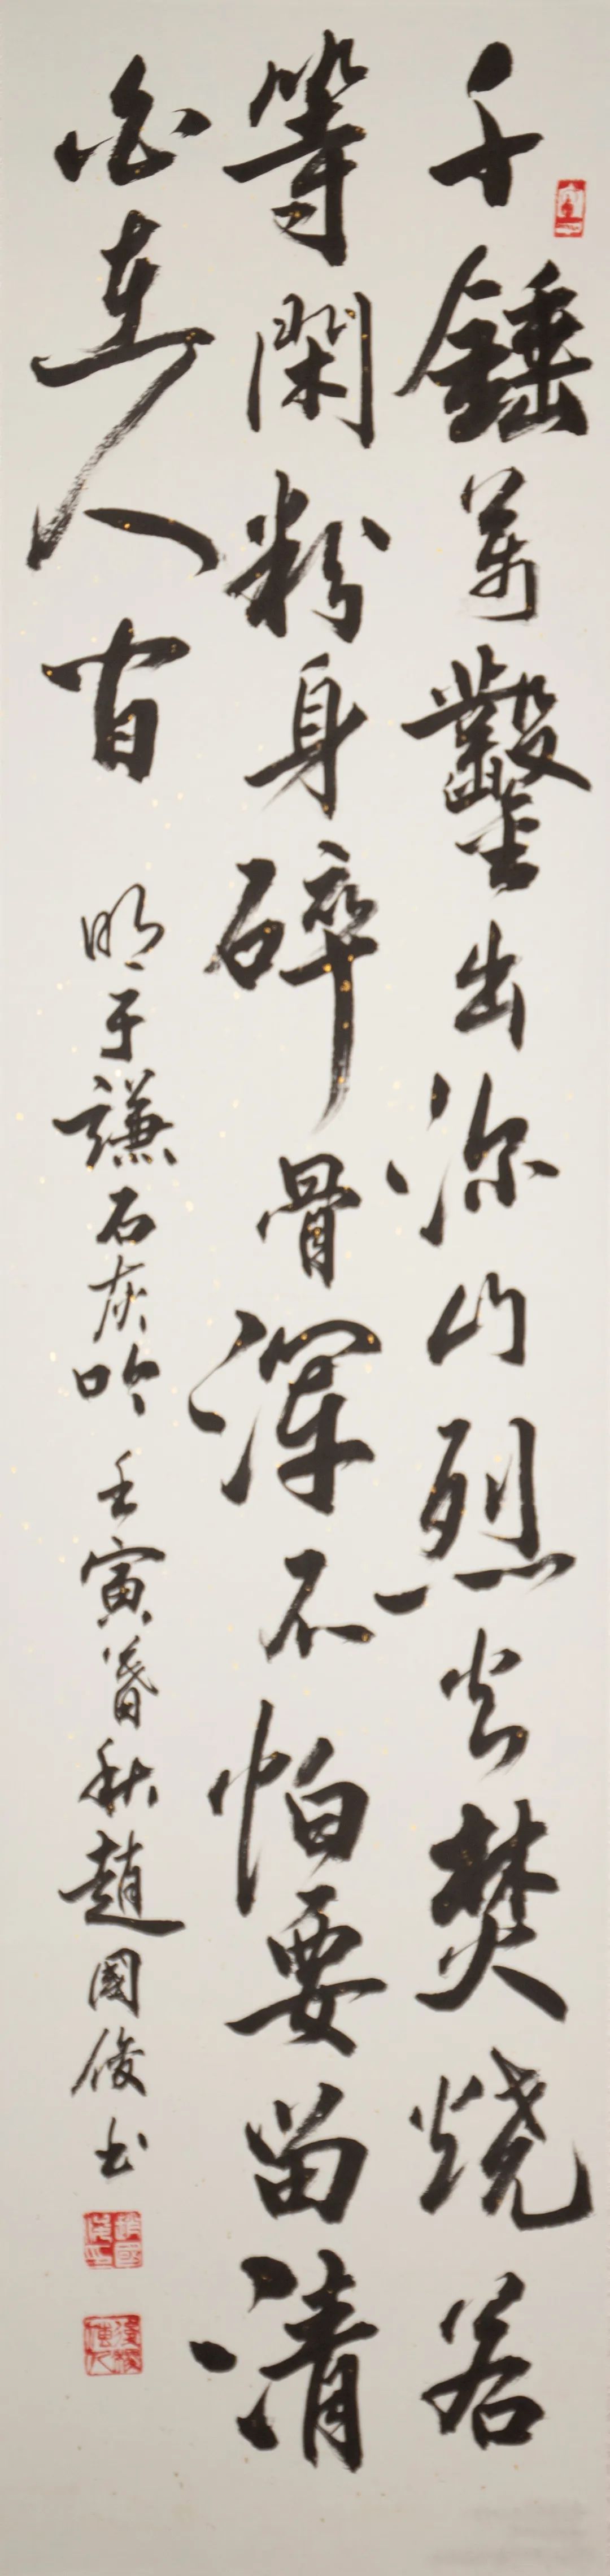 千錘萬鑿出深山烈火焚燒若
等閑粉身碎骨渾不怕要留清
白在人間 明于謙石灰吟 壬寅暮秋趙國俊书